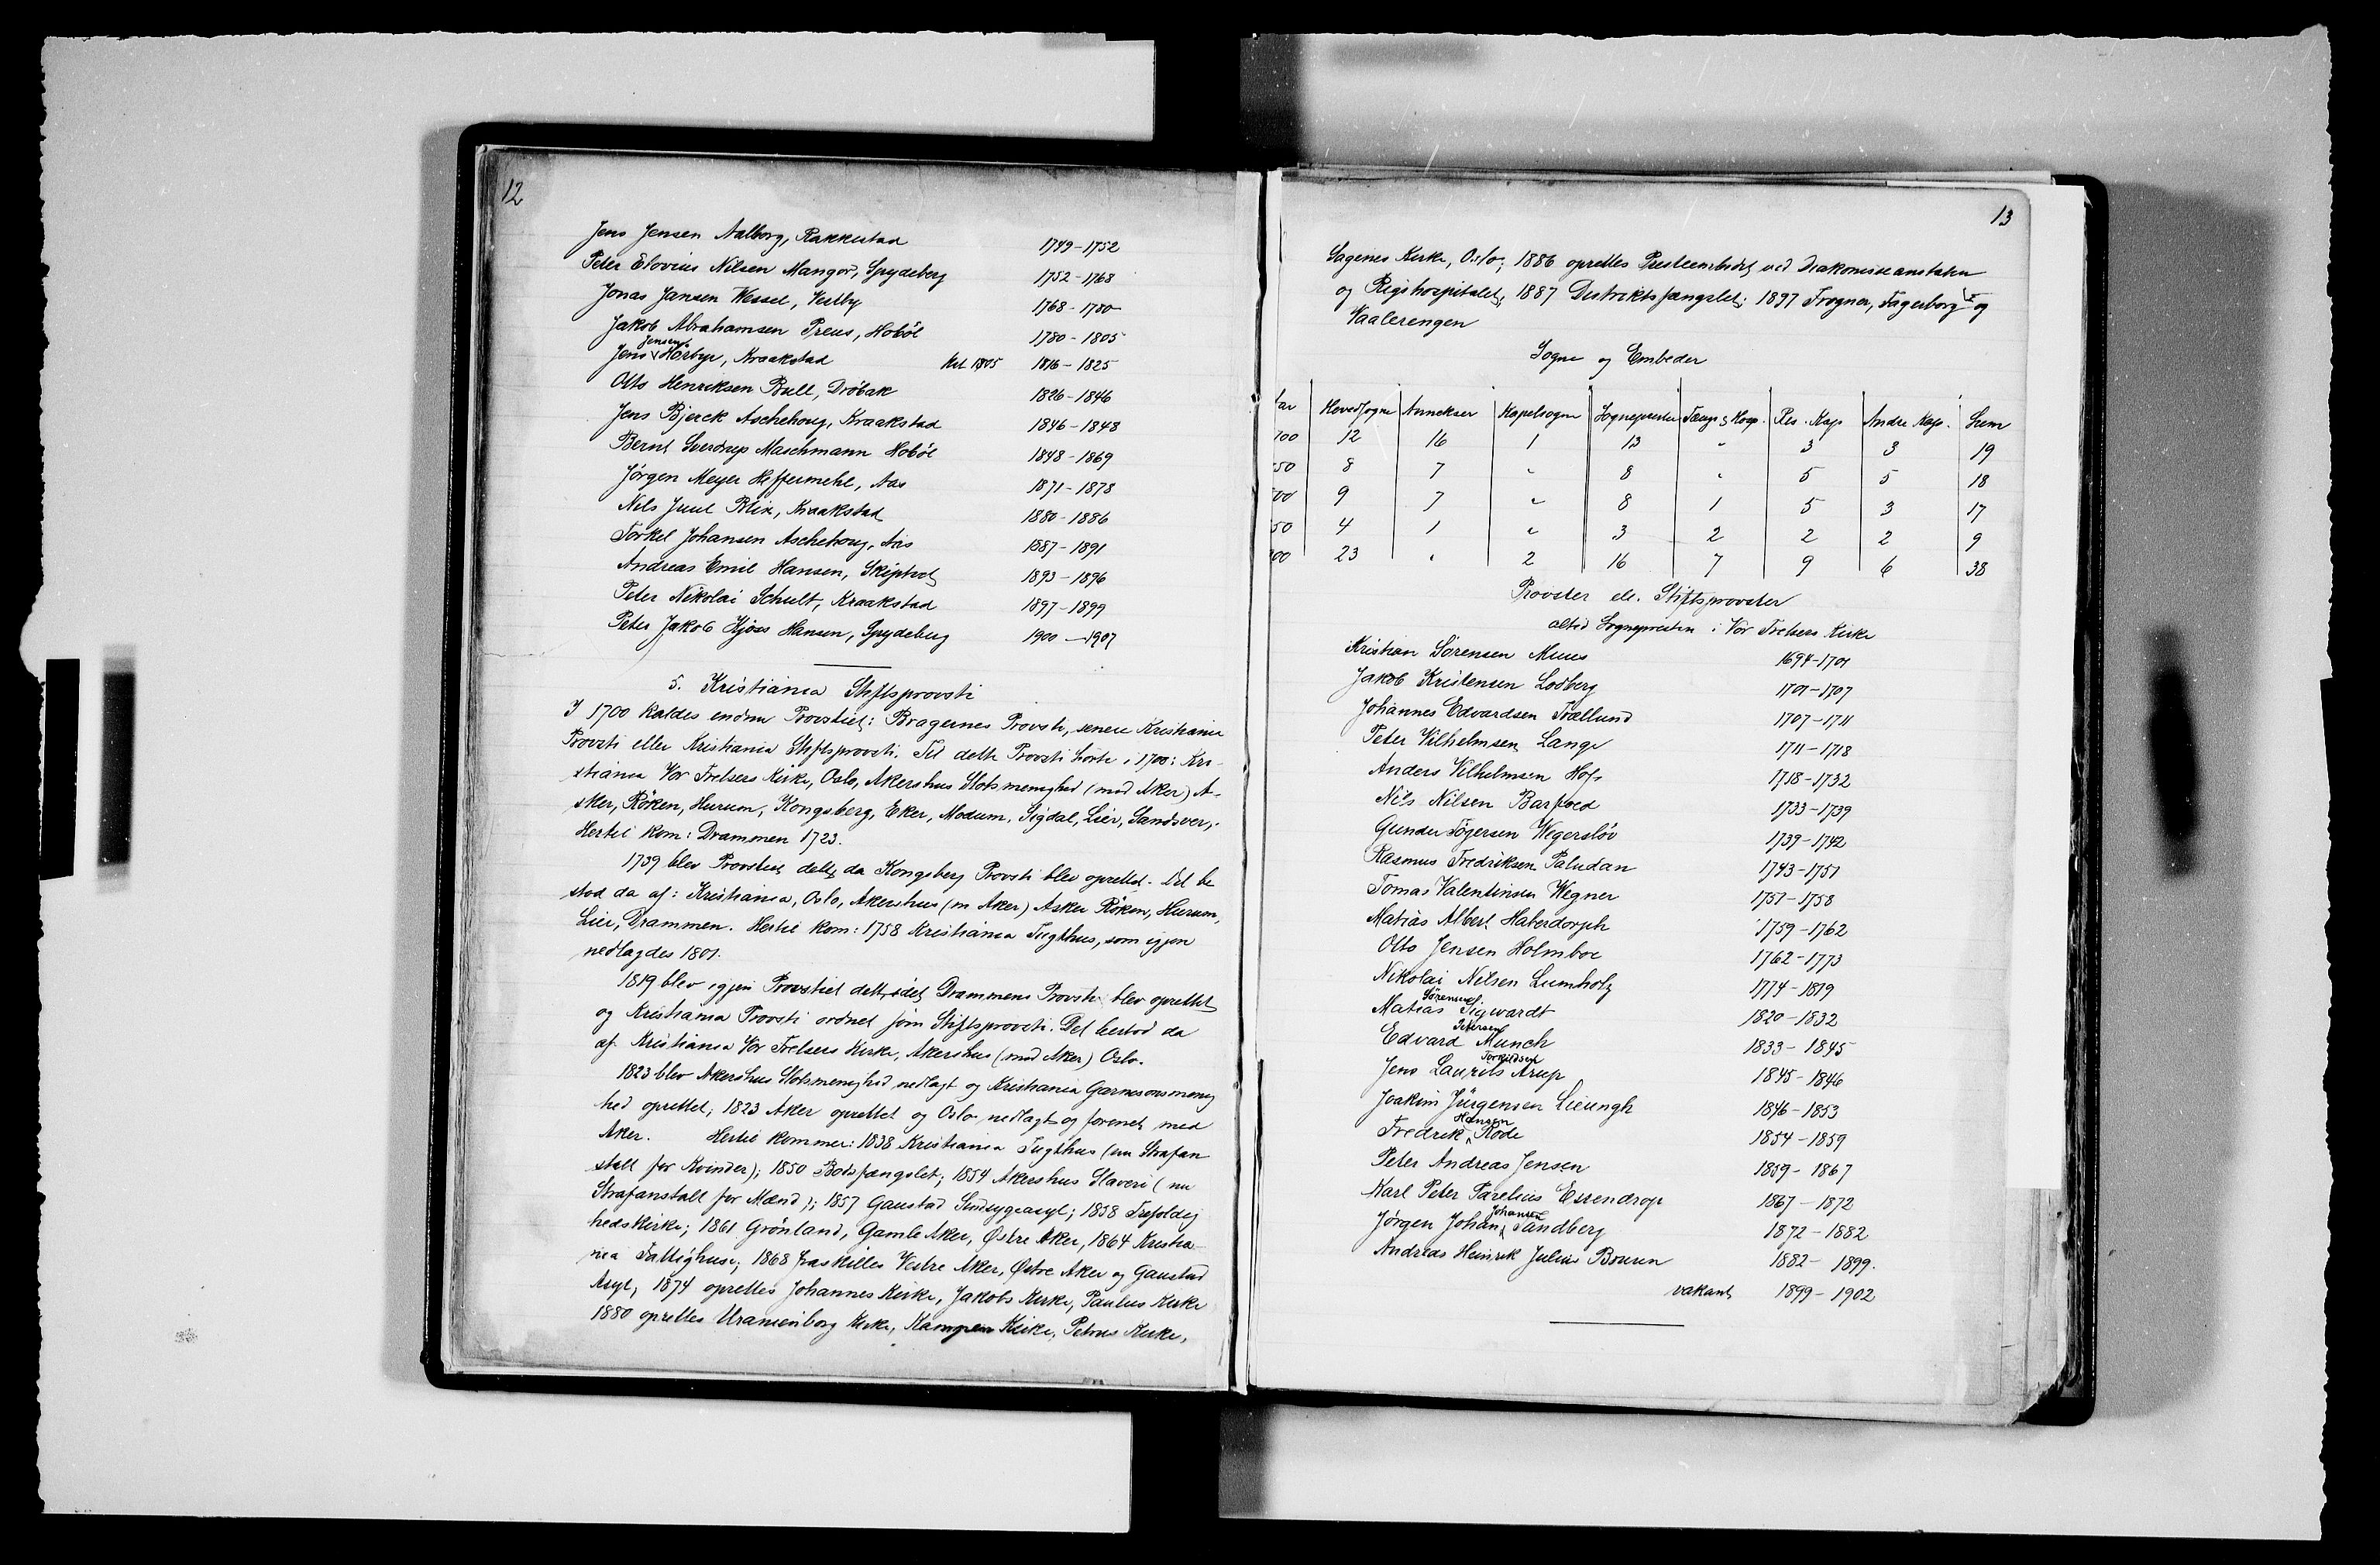 12
Jens Jensen Aalborg, Rakkestad 1749-1752
Peter Elovius Nilsen Mangor, Spydeberg 1752-1768
Jonas Jansen Wessel, Vestby 1768-1780
Jakob Abrahamsen Preus, Hobøl 1780-1805
Jens Jensen Hørbye, Kraakstad Kst 1805 1816-1825
Otto Henriksen Bull, Drøbak 1826-1846
Jens Bjerck Aschehoug, Kraakstad 1846-1848
Bernt Sverdrup Maschmann Hobøl 1848-1869
Jørgen Meyer Heffermehl, Aas 1871-1878
Nils Juul Blix, Kraakstad 1880-1886
Torkel Johansen Aschehoug, Aas 1887-1891
Andreas Emil Hansen, Skiptvet 1893-1896
Peter Nikolai Schult, Kraakstad 1897-1899
Peter Jakob Hjøss Hansen, Spydeberg 1900-1907
5. Kristiania Stiftsprovsti
I 1700 kaldes endnu Provstiet: Bragernes Provsti, senere Kristiania
Provsti eller Kristiania Stiftsprovsti. Til dette Provsti hørte i 1700: Kri-
stiania Vor Frelsers Kirke, Oslo, Akershus Slotsmenighed (med Aker) A-
sker, Røken, Hurum, Kongsberg, Eker, Modum, Sigdal, Lier, Sandsver;
Hertil kom: Drammen 1723.
1739 blev Provstiet delt, da Kongsberg Provsti blev oprettet. Det be
stod da af: Kristiania, Oslo, Akershus (m Aker) Asker Røken, Hurum,
Lier, Drammen. Hertil kom: 1758 Kristiania Tugthus, som igjen
nedlagdes 1801.
1819 blev igjen Provstiet delt, idet Drammens Provsti blev oprettet
og Kristiania Provsti ordnet som Stiftsprovsti. Det bestod da
af Kristiania Vor Frelsers Kirke, Akershus (med Aker) Oslo.
1823 blev Akershus Slotsmenighed nedlagt og Kristiania Garnisonsmenig
hed oprettet; 1823 Aker oprettet og Oslo nedlagt og forenet med
Aker. Hertil kommer: 1838 Kristiania Tugthus (nu Strafan
stalt for Kvinder); 1850 Botsfængslet; 1854 Akershus Slaveri (nu
Strafanstalt for Mænd); 1857 Gaustad Sindsygeasyl; 1858 Trefoldig
hedskirke; 1861 Grønland, Gamle Aker, Østre Aker, 1864 Kristia-
nia Fattighuse; 1868 fraskilles Vestre Aker, Østre Aker og Gaustad
Asyl, 1874 oprettes Johannes Kirke, Jakobs Kirke, Paulus Kirke
1880 oprettes Uranienborg Kirke, Kampen Kirke, Petrus Kirke,
13
Sagenes Kirke, Oslo; 1886 oprettes Presteembedet ved Diakonisseanstalten
og Rigshospitalet; 1887 Distriktsfængslet; 1897 Frogner, Fagerborg og
Vaalerengen
Sogne og Embeder
Aar Hovedsogne Annekser Kapelsogne Sogneprester Fængs & Hosp. Res. Kap Andre Kap. Sum
700 12 16 1 13 " 3 3 19
50 8 7 " 8 " 5 5 18
00 9 7 " 8 1 5 3 17
50 4 1 " 3 2 2 2 9
00 23 " 2 16 7 9 6 38
Provster el. Stiftsprovster
altid Sognepresten i Vor Frelsers Kirke
Kristian Sørensen Muus 1694-1701
Jakob Kristensen Lodberg 1701-1707
Johannes Edvardsen Trællund 1707-1711
Peter Vilhelmsen Lange 1711-1718
Anders Vilhelmsen Hof 1718-1732
Nils Nilsen Barfoed 1733-1739
Gunder Tøgersen Wegersløv 1739-1742
Rasmus Fredriksen Paludan 1743-1751
Tomas Valentinsen Wegner 1751-1758
Matias Albert Haberdorph 1759-1762
Otto Jensen Holmboe 1762-1773
Nikolai Nilsen Lumholz 1774-1819
Matias Sørensen Sigwardt 1820-1832
Edvard Petersen Munch 1833-1845
Jens Laurits Torgildsen Arup 1845-1846
Joakim Jürgensen Lieungh 1846-1853
Fredrik Hansen Rode 1854-1859
Peter Andreas Jensen 1859-1867
Karl Peter Parelius Essendrop 1867-1872
Jørgen Johan Johansen Tandberg 1872-1882
Andreas Heinrik Julius Bruun 1882-1899.
vakant 1899-1902